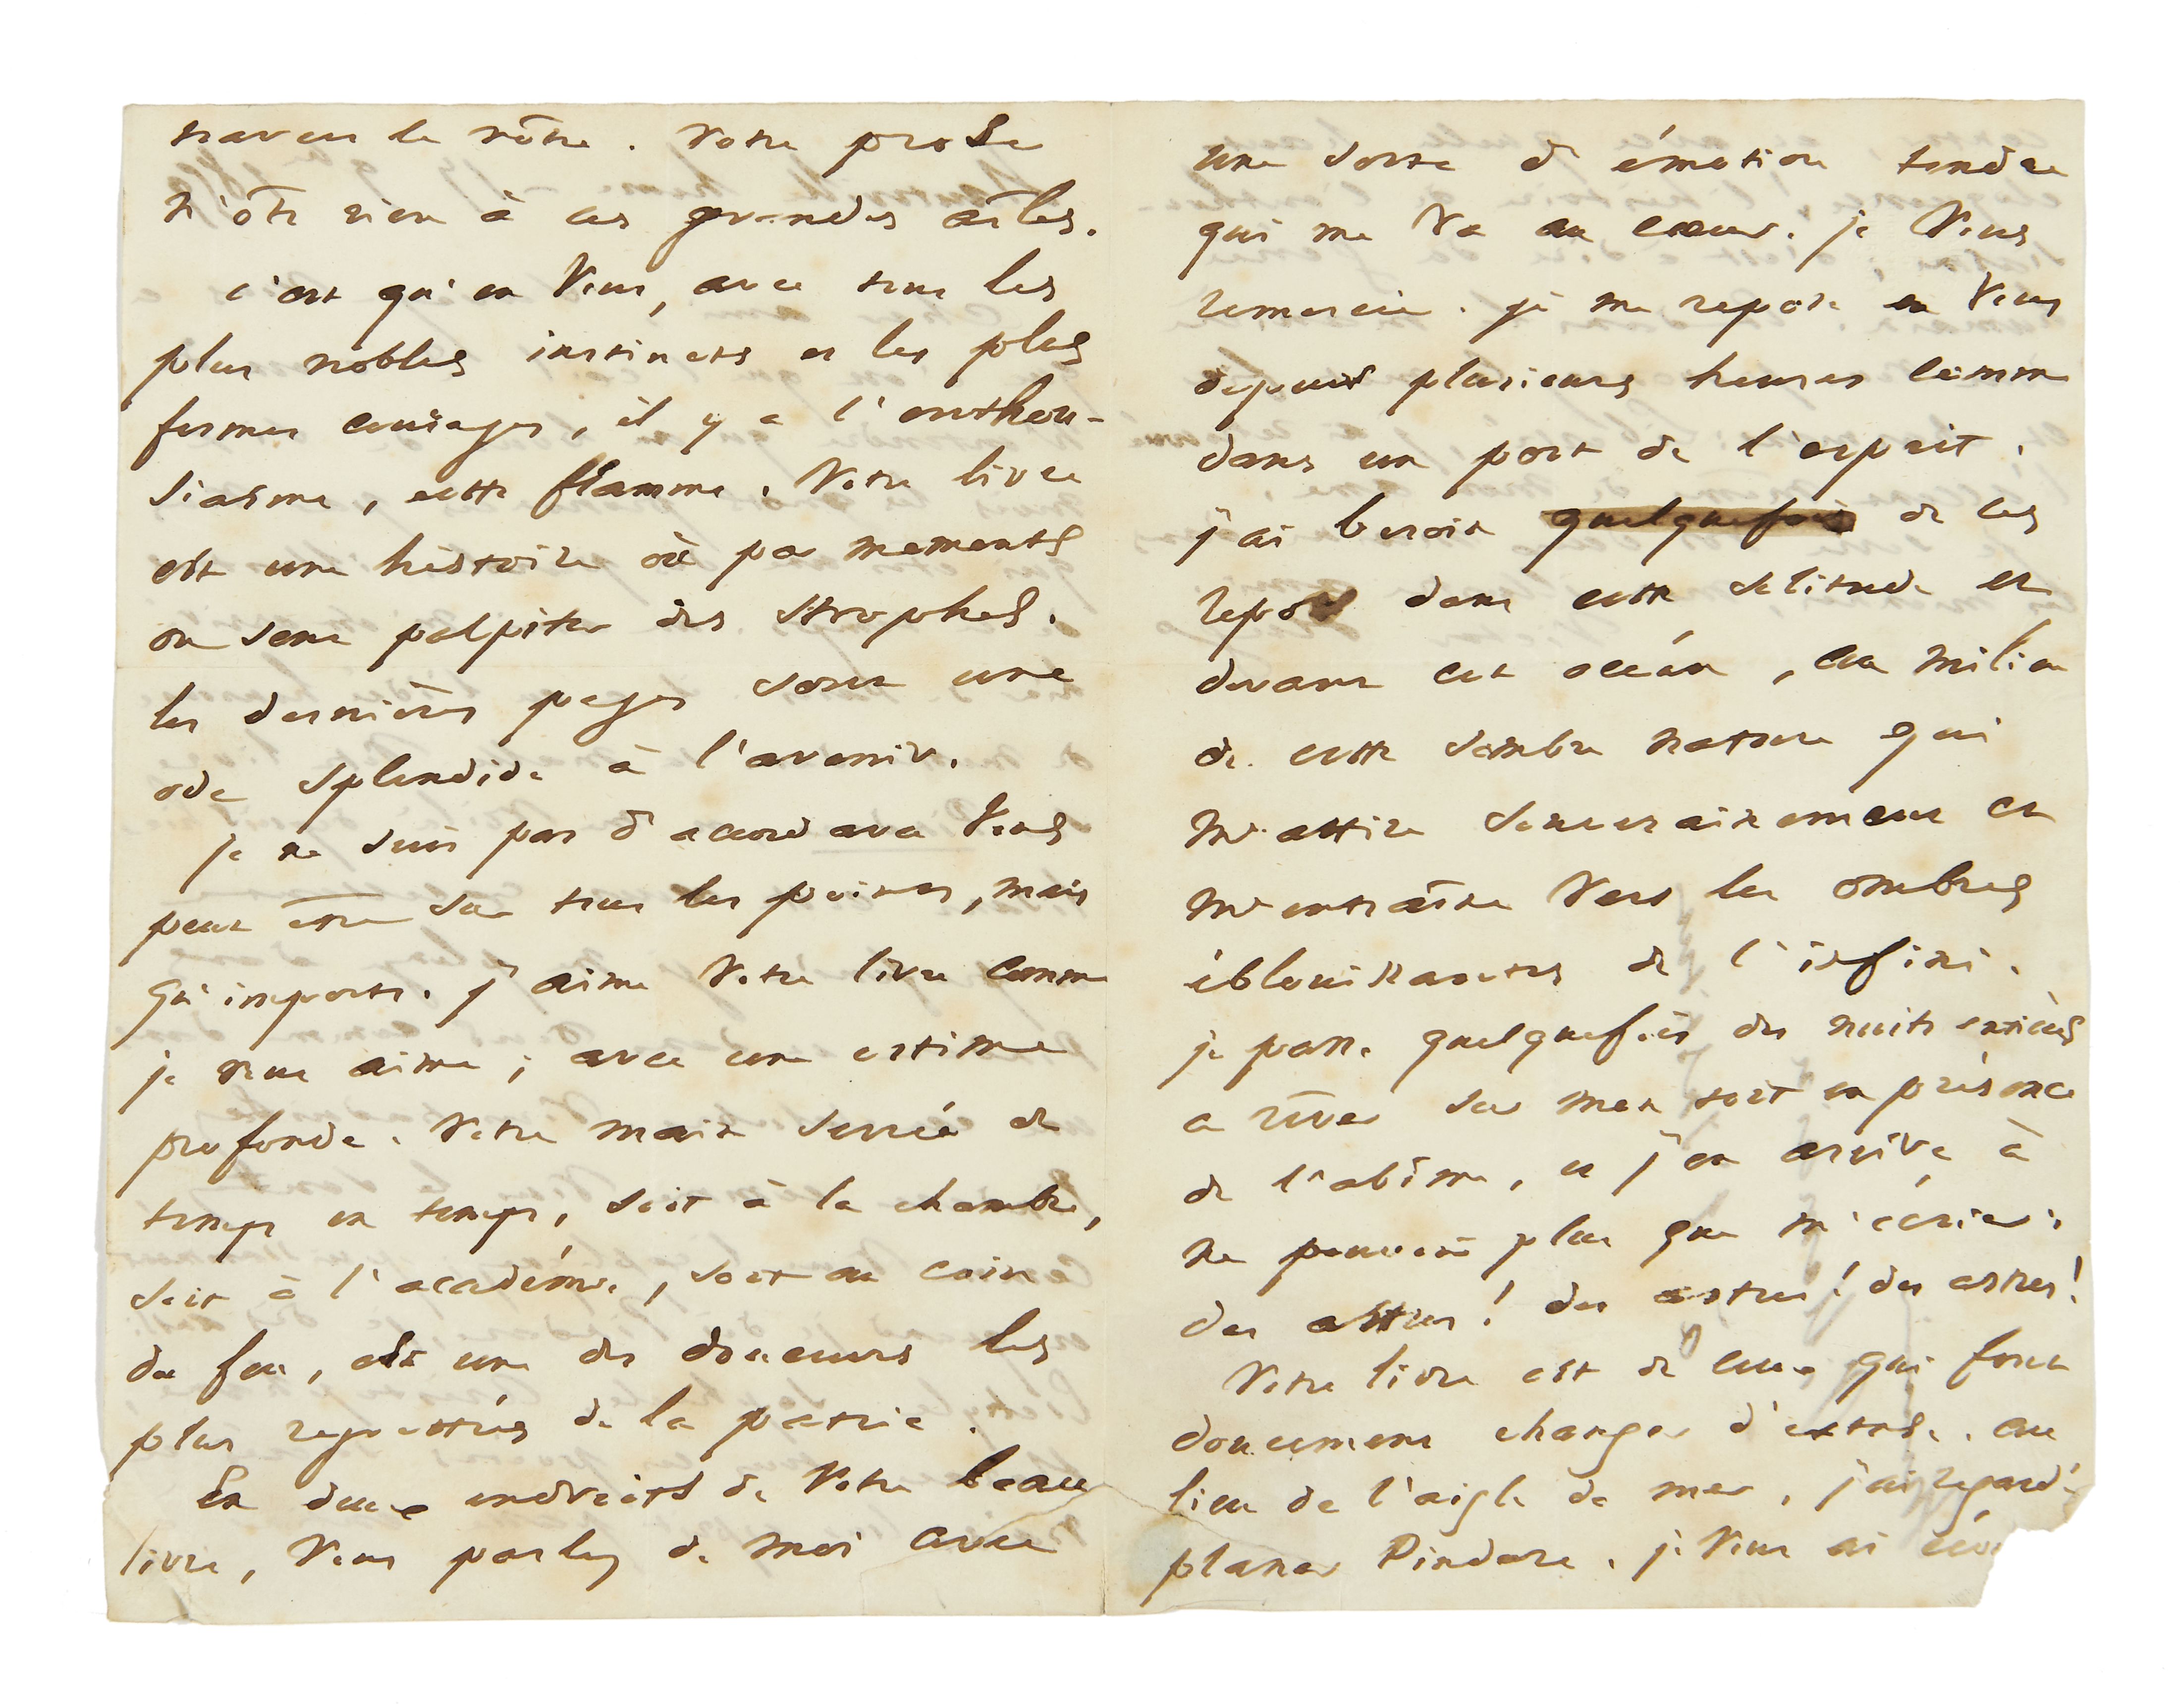 travers le vôtre. Votre prose
n'ôte rien à ces grandes ailes.
c'est qu'en vous, avec tous les
plus nobles instincts et les plus
fermes courages, il y a l'enthou-
siasme, cette flamme. Votre livre
est une histoire où par moments
on sent palpiter des strophes.
les dernières pages sont une
ode splendide à l'avenir.
je ne suis pas d'accord avec vous
peut être sur tous les points, mais
qu'importe. j'aime votre livre comme
je vous aime ; avec une estime
profonde. Votre main serrée de
temps en temps, soit à la chambre,
soit à l'académie, soit au coin
du feu, est une des douceurs les
plus regrettées de la patrie.
En deux endroits de votre beau
livre, vous parlez de moi avec
une sorte d'émotion tendre
qui me va au cœur. je vous
remercie. je me repose en vous
depuis plusieurs heures comme
dans un port de l'esprit.
j'ai besoin quelquefois de ces
repos dans cette solitude et
devant cet océan, au milieu
de cette sombre nature qui
m'attire souverainement et
m'entraîne vers les ombres
éblouissantes de l'infini.
je passe quelquefois des nuits entières
a rêver sur mon toit en présence
de l'abîme, et j'en arrive à
ne pouvoir plus que m'écrier :
des astres ! des astres ! des astres !
Votre livre est de ceux qui font
doucement changer d'extase. au
lieu de l'aigle de mer, j'ai regardé
planer Pindare. je vous ai